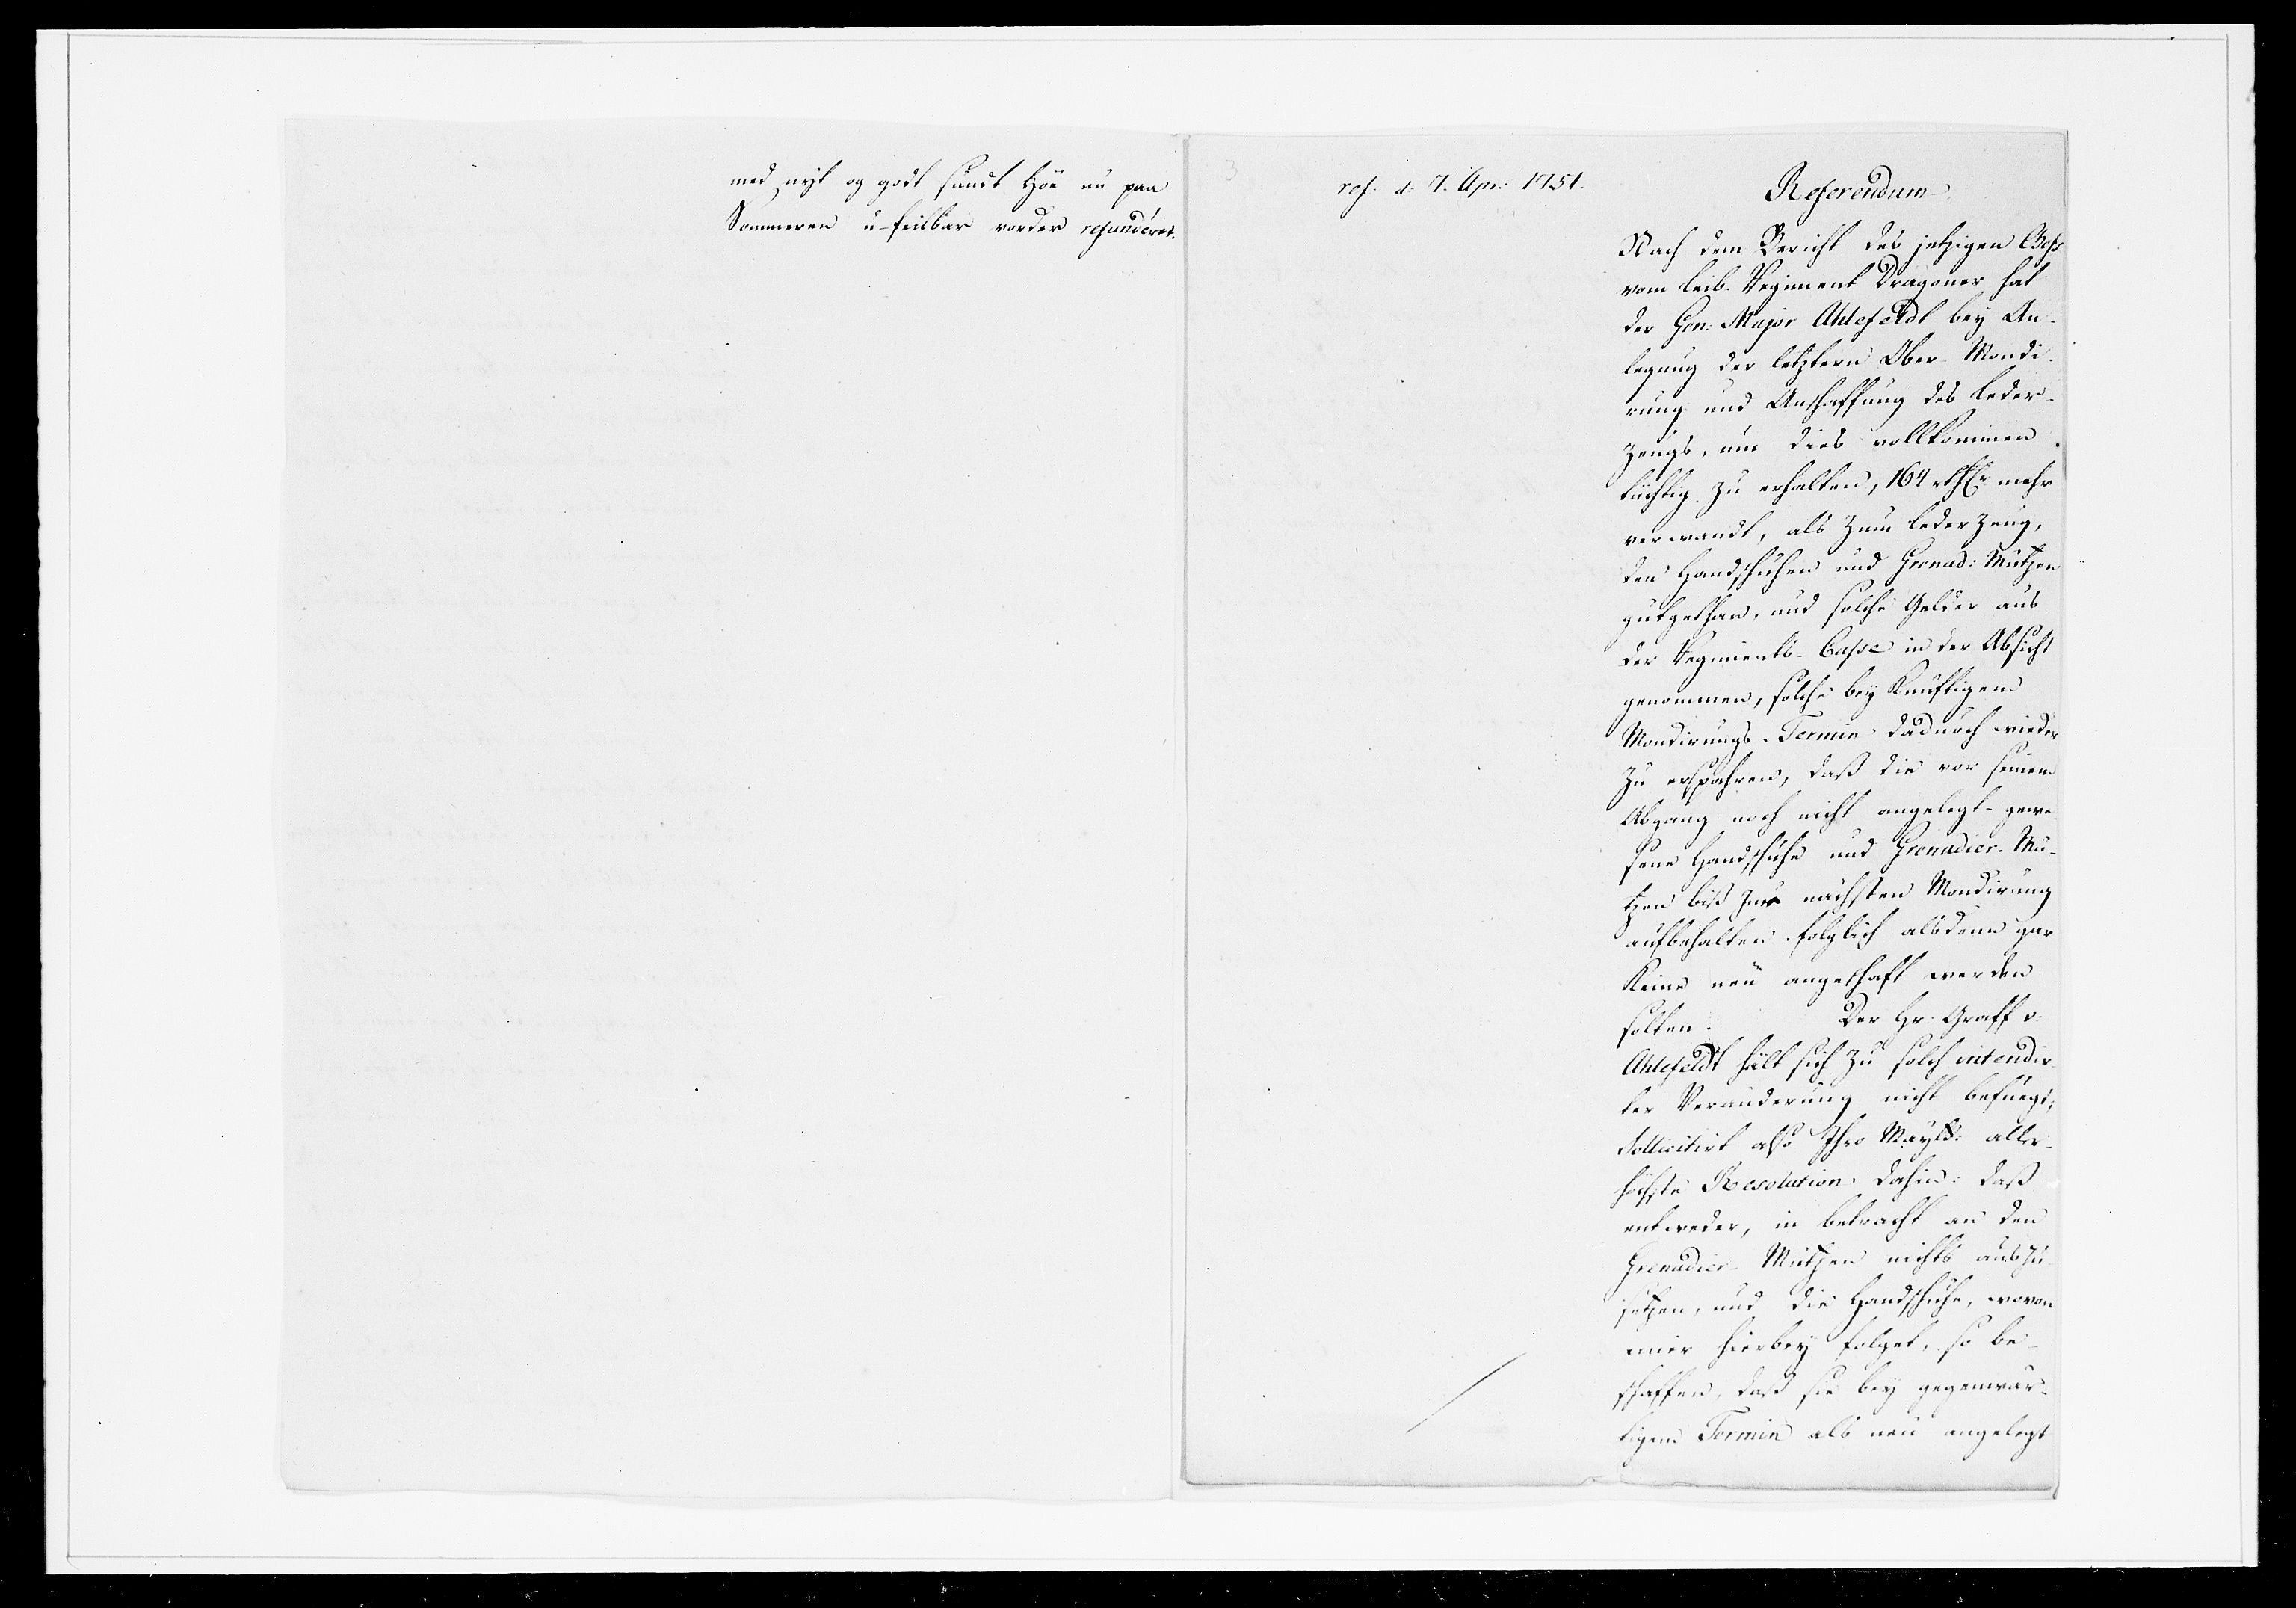 med nyt og godt sundt Höe nu paa
Sommeren u-feilbar vorder refunderet.
3
ref. d. 7. Apr: 1751.
Referendum
Nach dem Bericht des jetzigen Chefs
vom leib-Regiment Dragoner hat
der Gen: Major Ahlefeldt bey An-
legung der letztern Ober-Mondi-
rung und Anschaffung des leder-
zeugs, um dies vollkommen
tüchtig zu erhalten, 164 rthlr mehr
verwandt, als zum lederzeug,
den Handschuhen und Grenad: Mützen
gutgethan, und solche Gelder aus
der Regiments-Casse in der Absicht
genommen, solche bey künftigem
Mondirungs-Termin dadurch wieder
zu erspahren, daß die vor seinem
Abgang noch nicht angelegt-gewe-
sene Handschuhe und Grenadier-Mü-
tzen biß zur nächsten Mondirung
aufbehalten folglich alsdenn gar
keine neu angeschaft werden
solten. Der Hr. Graff v.
Ahlefeldt hält sich zu solch intendir-
ter Veränderung nicht befuegt,
sollicitirt also Ihro Mayts: aller-
höchste Resolution dahin: daß
entweder, in betracht an den
Grenadier-Mützen nichts auszu-
setzen, und die Handschuhe, wovon
hierbey folget, so be-
schaffen, daß sie bey gegenwär-
tigem Termin als neu angelegt